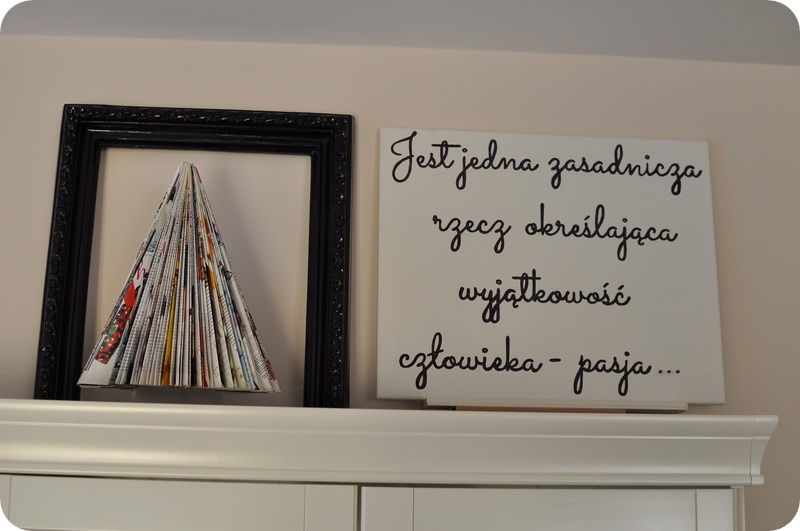 Jest jedna zasadnicza
rzecz określająca
wyjątkowość
człowieka - pasja...